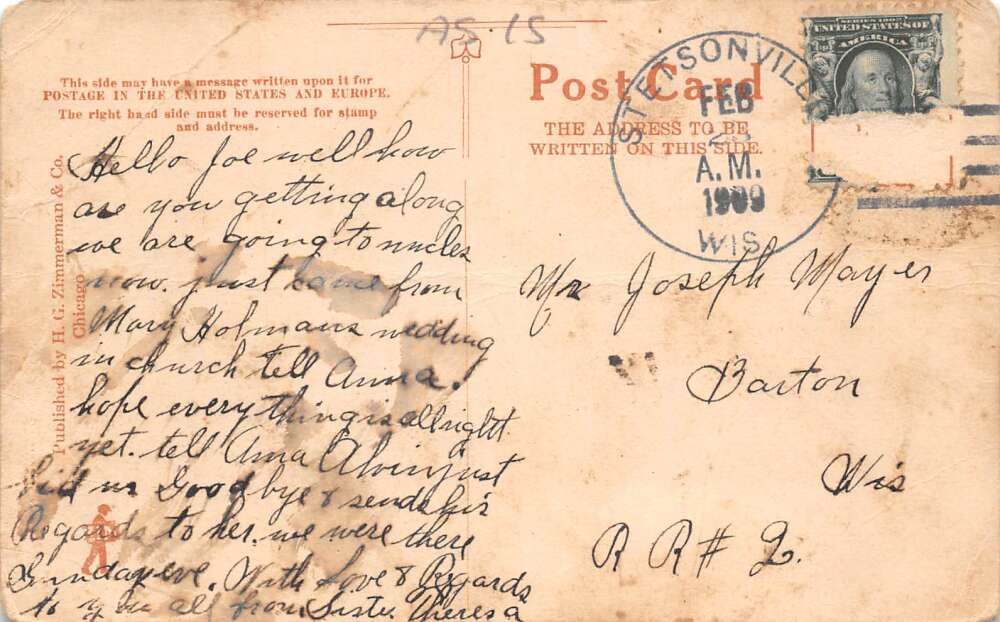 AS 15
This side may have a message written upon it for
POSTAGE IN THE UNITED STATES AND EUROPE.
The right hand side must be reserved for stamp
and address.
Published by H. G. Zimmerman & Co.
Chicago
Hello Joe well how
are you getting along
we are going to uncles
now. just came from
Mary Holmans wedding
in church tell Anna.
hope everything is allright
yet. tell Anna Alvin just
bid us Goodbye & sends his
Regards to her. we were there
Sunday eve. With Love & Regards
to you all from Sister Theresa
Post Card
THE ADDRESS TO BE
WRITTEN ON THIS SIDE.
STETSONVILLE
FEB
A.M.
1909
WIS.
SERIES 1902
UNITED STATES OF
AMERICA
Mr Joseph Mayer
Barton
Wis
R R # 2.